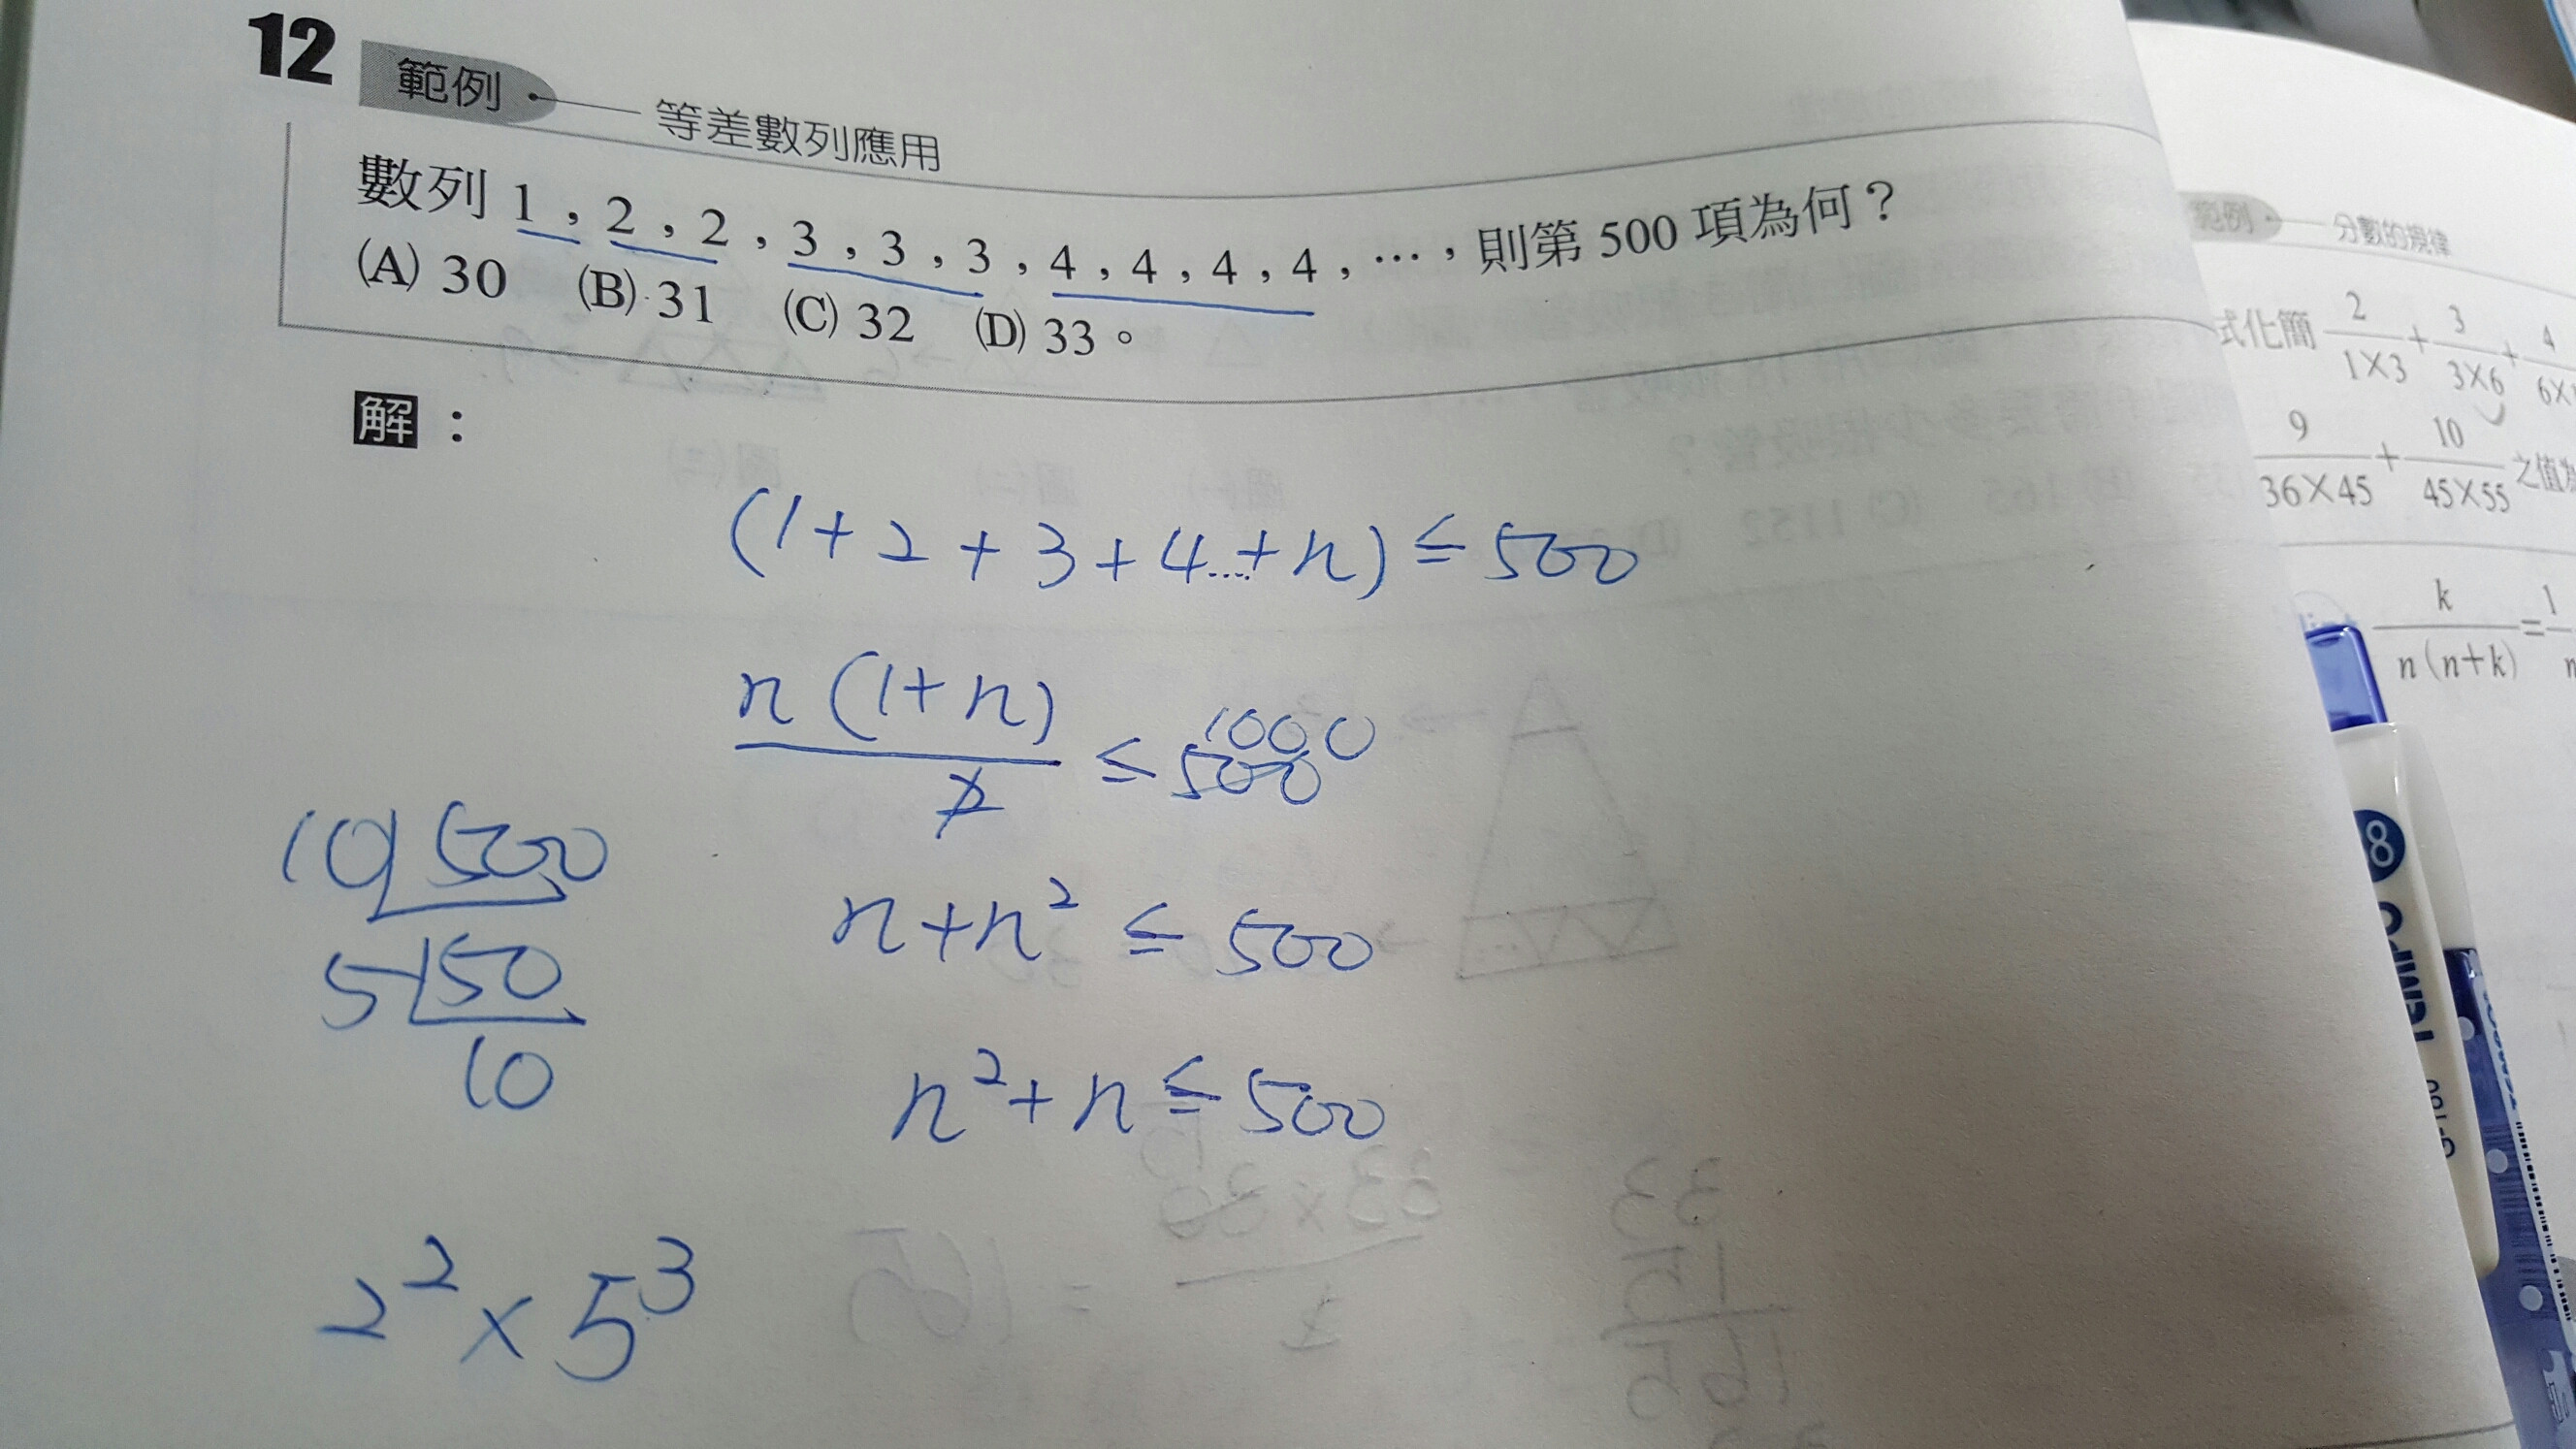 12 範例 等差數列應用
數列 1，2，2，3，3，3，4，4，4，4，…，則第 500 項為何？
(A) 30 (B) 31 (C) 32 (D) 33。
解：
(1+2+3+4…+n) ≤ 500
n(1+n)/2 ≤ 500 1000
n+n² ≤ 500
n²+n ≤ 500
10 500
5 50
10
2²×5³
範例 分數的規律
試化簡 2/1×3 + 3/3×6 +
9/36×45 + 10/45×55 之值
k/n(n+k) =
8